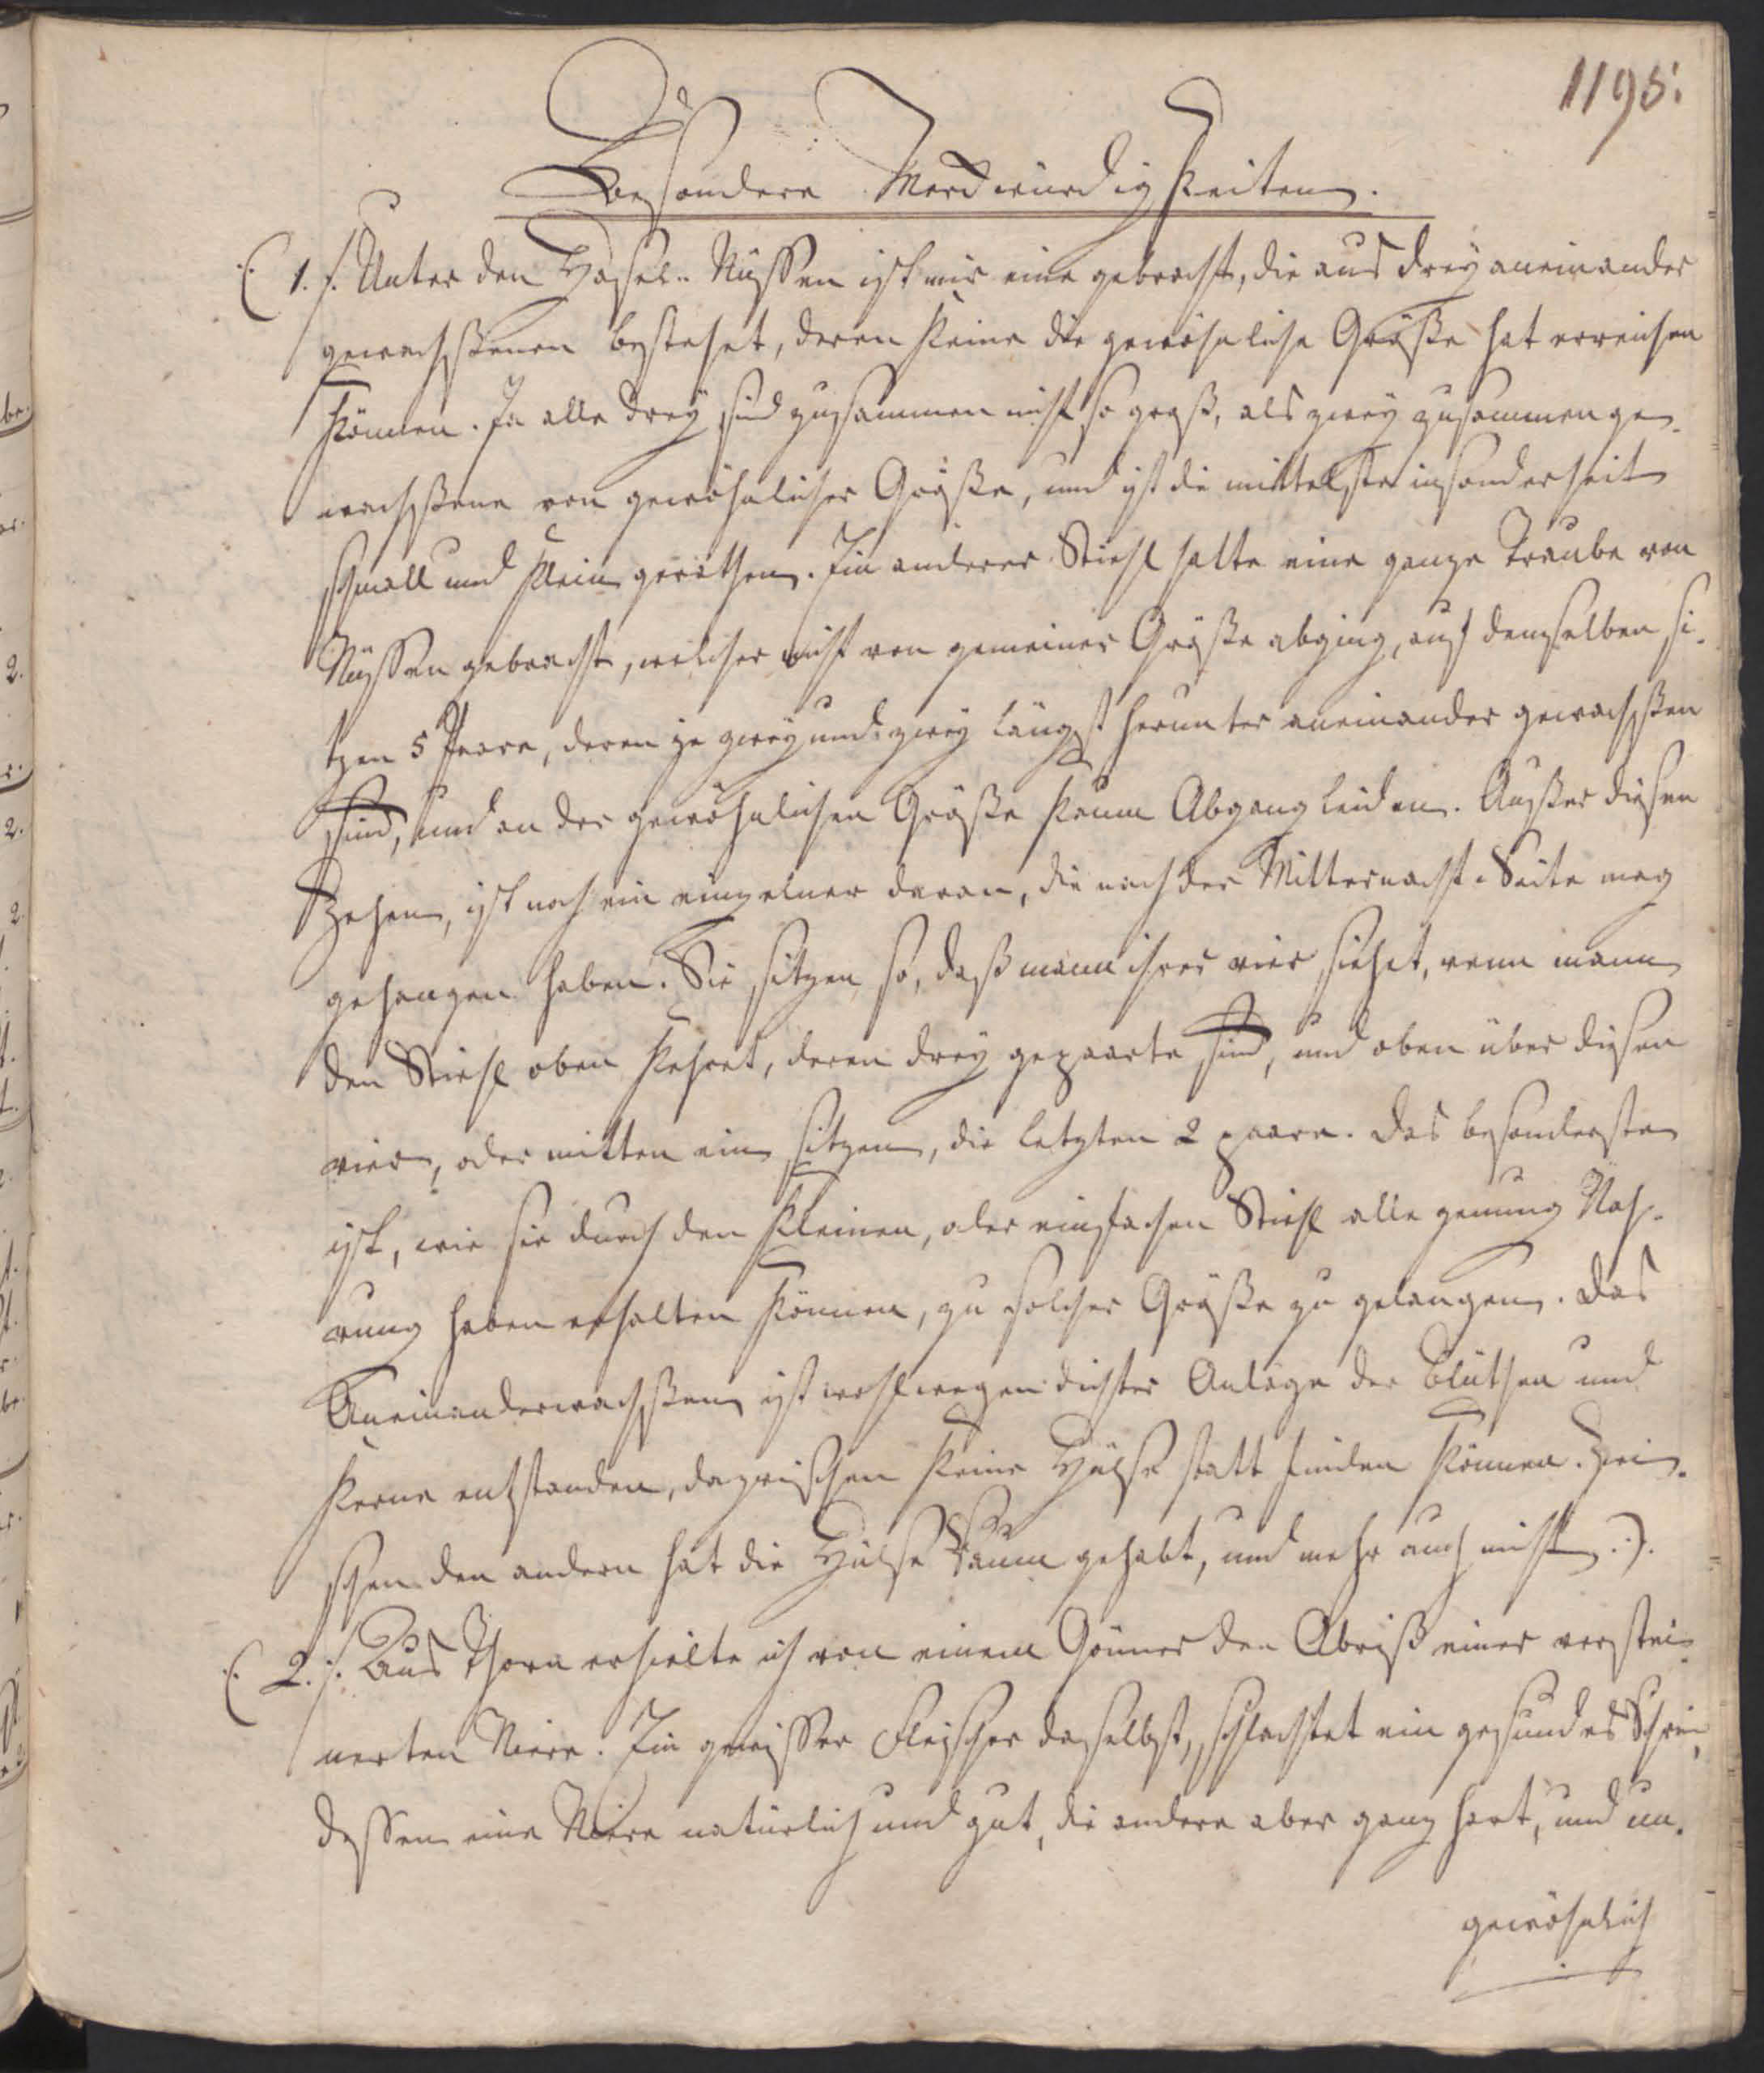 1195.
Besondere Merckwürdigkeiten.
(: 1. /: Unter den Hasel-Nüssen ist mir eine gebracht, die aus drey aneinander
gewachsßenen bestehet, deren keine die gewöhnliche Größe hat erreichen
können. Ja alle drey sind zusammen nicht so groß, als zwey zusammen ge-
wachsßene von gewöhnlicher Größe, und ist die mittelste insonderheit
schmall und klein gerathen. Ein anderer Stiehl hatte eine ganze Traube von
Nüssen gebracht, welcher nicht von gemeiner Größe abging, auf demselben si-
tzen 5 Paare, deren je zwey und zwey längst herunter aneinander gewachsßen
sind, und an der gewöhnlichen Größe kaum Abgang leiden. Außer diesen
Zehen, ist noch ein einzelner daran, die nach der Mitternacht-Seite mag
gehangen haben. Sie sitzen so, daß mann ihrer vier siehet, wenn mann
den Stiehl oben kehret, deren drey gepaarte sind, und oben über diesen
vier, oder mitten ein sitzen, die letzten 2 paare. Das besonderste
ist, wie sie durch den kleinen, oder einfachen Stiehl alle genung Nah-
rung haben erhalten können, zu solcher Größe zu gelangen. Das
Aneinanderwachsßen ist wohl wegen dichter Anlage der Blüthen und
Kerne entstanden, dazwischen keine Hülse statt finden können. Zwi-
schen den andern hat die Hülse Raum gehabt, und mehr auch nicht :).
(: 2. /: Aus Thorn erhielte ich von einem Gönner den Abriß einer verstei-
nerten Niere. Ein gewisser Fleischer daselbst, schlachtet ein gesundes Schwein,
dessen eine Niere natürlich und gut, die andere aber ganz hart, und un-
gewöhnlich